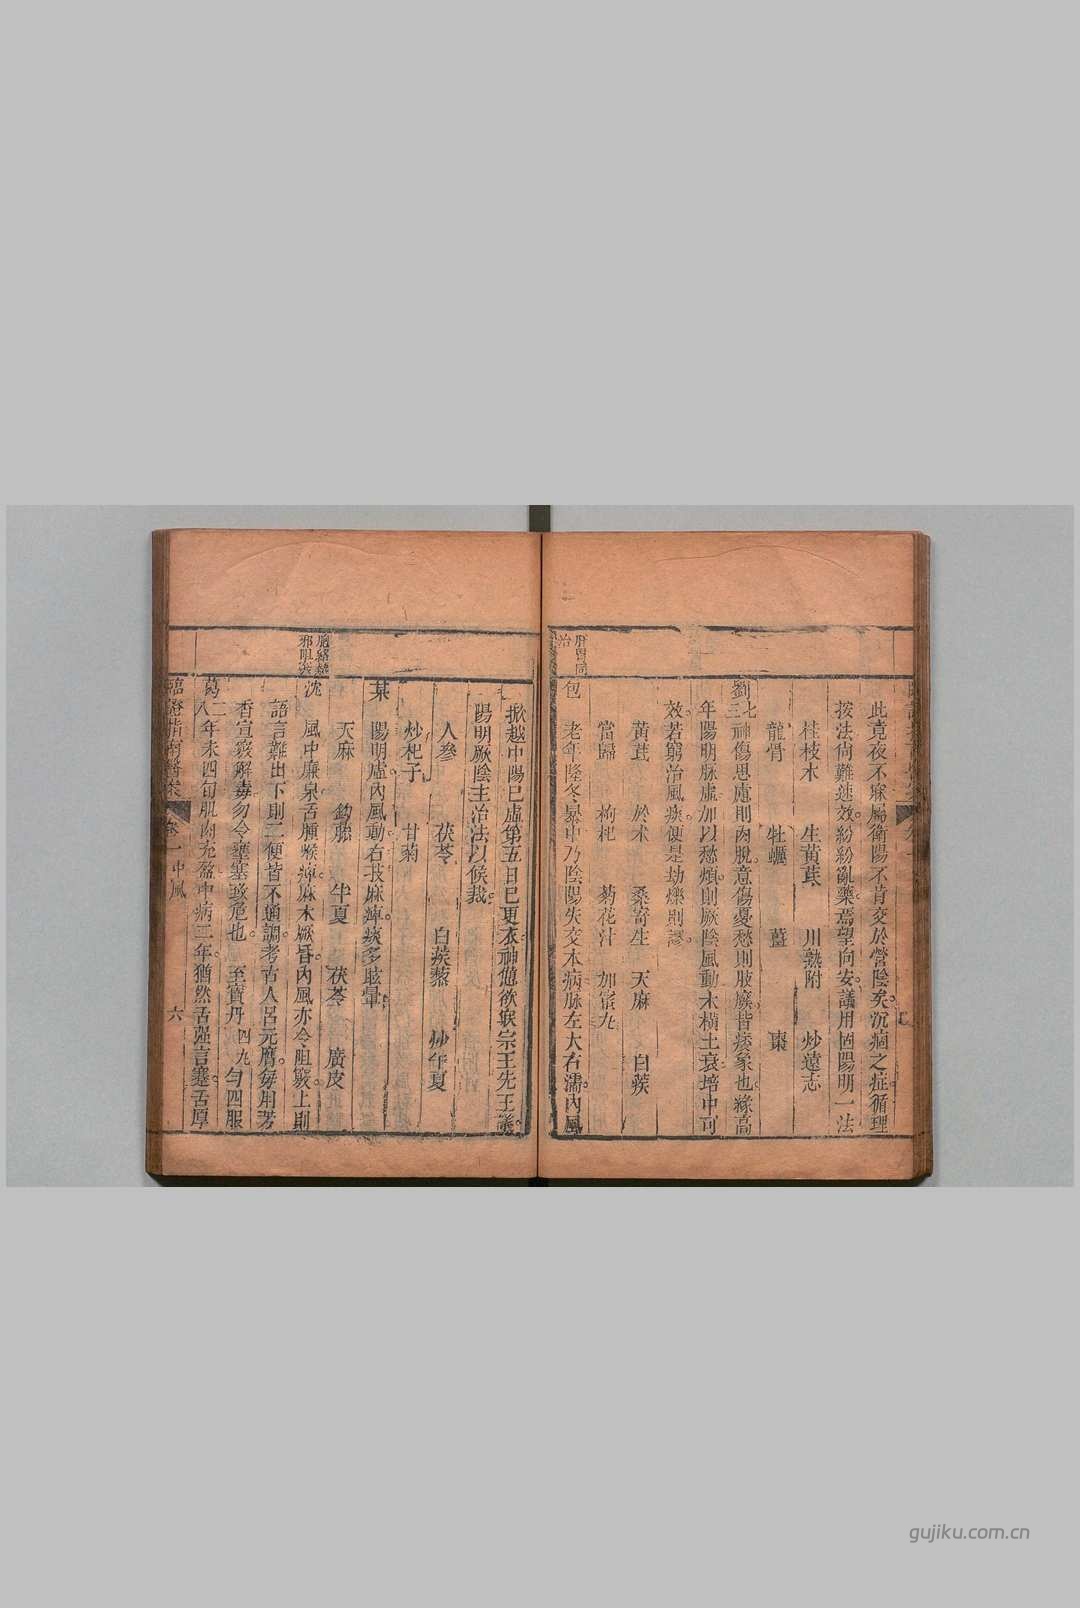 此竟夜不寐屬衛陽不肯交於營陰矣沉痼之症循理
按法尚難速效紛紛亂藥焉望向安議用固陽明一法
桂枝木 生黃芪 川熟附 炒遠志
龍骨 牡蠣 薑 棗
劉七三 神傷思慮則肉脫意傷憂愁則肢廢皆痿象也緣高
年陽明脈虛加以愁煩則厥陰風動木橫土衰培中可
效若窮治風痰便是劫爍則謬
黃芪 於朮 桑寄生 天麻 白蒺
當歸 枸杞 菊花汁 加蜜丸
肝胃同治
包 老年隆冬暴中乃陰陽失交本病脈左大右濡內風
掀越中陽已虛第五日已更衣神憊欲寐宗王先王議
陽明厥陰主治法以候裁
人參 茯苓 白蒺藜 炒半夏
炒杞子 甘菊
某 陽明虛內風動右肢麻痺痰多眩暈
天麻 鈎藤 半夏 茯苓 廣皮
胞絡熱邪阻竅
沈 風中廉泉舌腫喉痺麻木厥昏內風亦令阻竅上則
語言難出下則二便皆不通調考古人呂元膺每用芳
香宣竅解毒勿令壅塞致危也 至寶丹 四九 勻四服
葛二八 年未四旬肌肉充盈中病二年猶然舌強言蹇舌厚
臨證指南醫案 卷一 中風 六
gujiku.com.cn